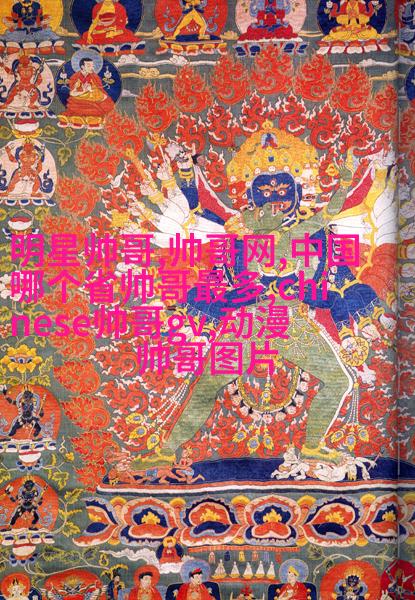 明星帅哥,帅哥网,中国
哪个省帅哥最多,chi
nese帅哥gv,动漫
帅哥图片